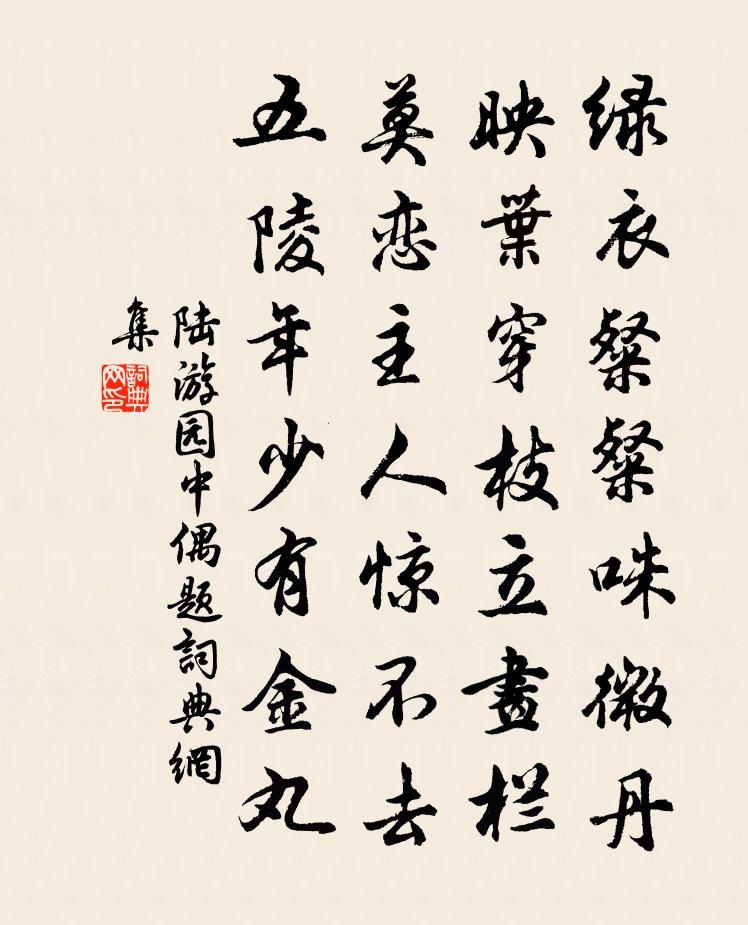 绿衣粲粲咮微丹
映葉穿枝立畫栏
莫恋主人惊不去
五陵年少有金丸
陆游园中偶题詞典網
集
詞典网印